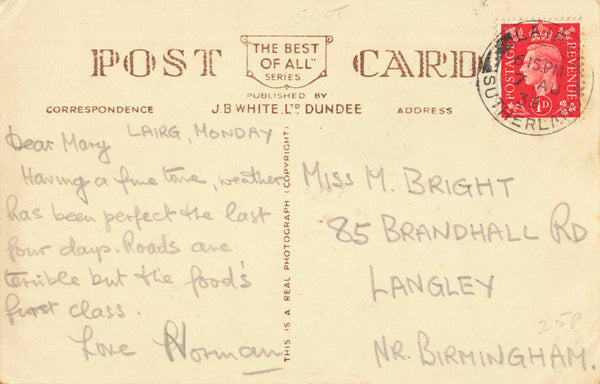 SCOT
POST CARD
"THE BEST
OF ALL"
SERIES
PUBLISHED BY
J.B. WHITE. LTD DUNDEE
CORRESPONDENCE
ADDRESS
LAIRG
6.15 PM
7 AU
39
SUTHERLAND
POSTAGE
REVENUE
1D
LAIRG, MONDAY
Dear Mary
Having a fine time, weather
has been perfect the last
four days. Roads are
terrible but the food's
first class.
Love Norman
THIS IS A REAL PHOTOGRAPH (COPYRIGHT)
MISS M. BRIGHT
85 BRANDHALL RD
LANGLEY
NR. BIRMINGHAM.
258